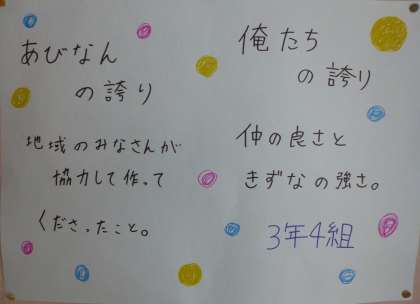 あびなん
の誇り
地域のみなさんが
協力して作って
くださったこと。
俺たち
の誇り
仲の良さと
きずなの強さ。
3年4組